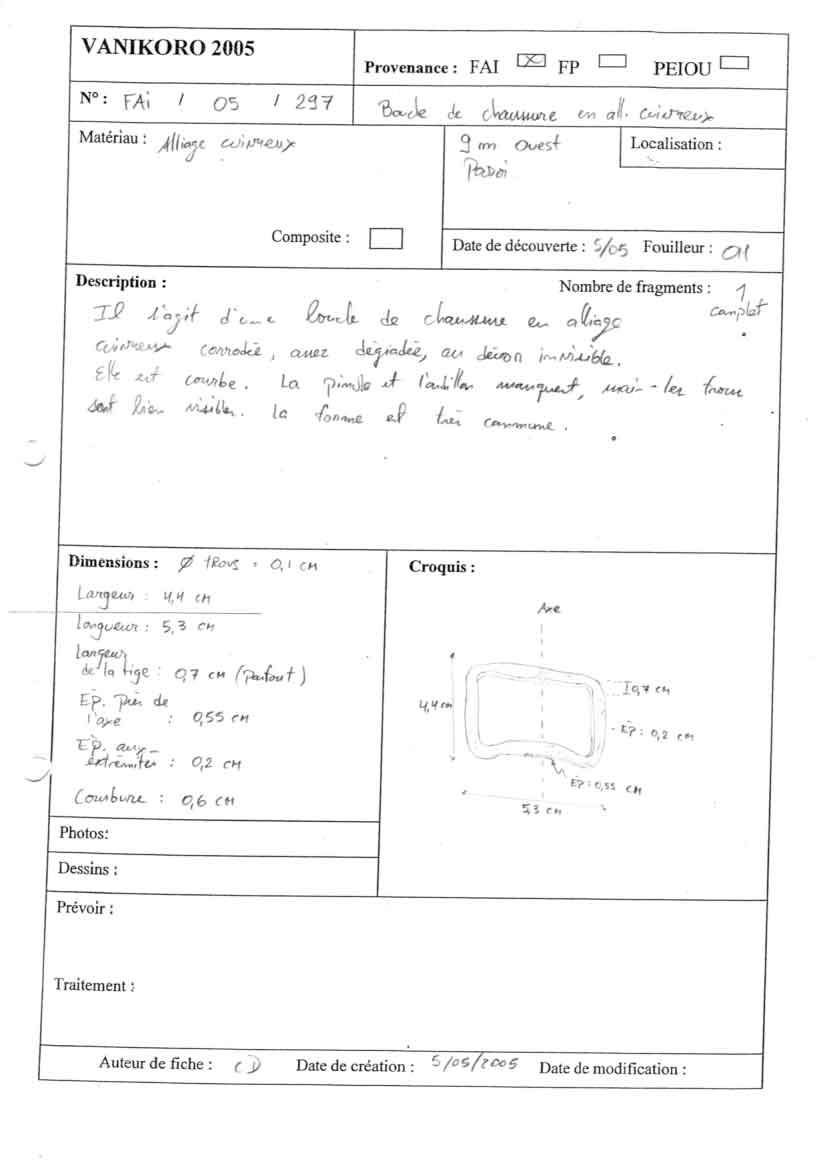 VANIKORO 2005
Provenance : FAI ☒ FP ☐ PEIOU ☐
N° : FAI / 05 / 297
Boucle de chaussure en all. cuivreux
Matériau : Alliage cuivreux
9 m Ouest
Localisation :
Composite : ☐
Date de découverte : 5/05 Fouilleur :
Description :
Nombre de fragments : 1
complet
Il s'agit d'une boucle de chaussure en alliage
cuivreux corrodée, assez dégradée, au décor invisible.
Elle est courbe. La pinille et l'ardillon manquent, mais les trous
sont bien visibles. la forme est très commune.
Dimensions : Ø trous = 0,1 cm
Largeur : 4,4 cm
longueur : 5,3 cm
largeur
de la tige : 0,7 cm (partout)
Ep. près de
l'axe : 0,55 cm
Ep. aux
extrémités : 0,2 cm
Courbure : 0,6 cm
Croquis :
Axe
0,7 cm
4,4 cm
Ep : 0,2 cm
Ep : 0,55 cm
5,3 cm
Photos:
Dessins :
Prévoir :
Traitement :
Auteur de fiche : CD Date de création : 5/05/2005 Date de modification :